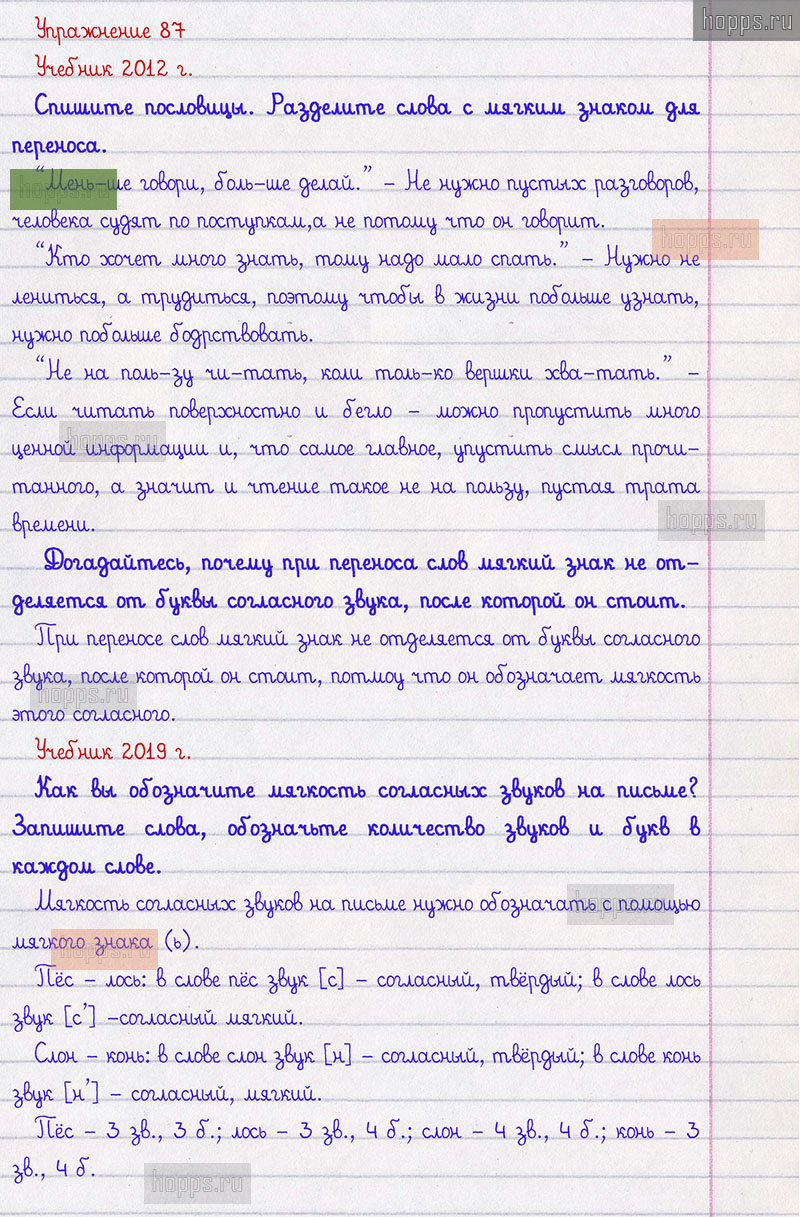 hopps.ru
Упражнение 87
Учебник 2012 г.
Спишите пословицы. Разделите слова с мягким знаком для
переноса.
“Мень-ше говори, боль-ше делай.” - Не нужно пустых разговоров,
hopps.ru
человека судят по поступкам,а не потому что он говорит.
hopps.ru
“Кто хочет много знать, тому надо мало спать.” - Нужно не
лениться, а трудиться, поэтому чтобы в жизни побольше узнать,
нужно побольше бодрствовать.
“Не на поль-зу чи-тать, коли толь-ко вершки хва-тать.” -
Если читать поверхностно и бегло - можно пропустить много
hopps.ru
ценной информации и, что самое главное, упустить смысл прочи-
танного, а значит и чтение такое не на пользу, пустая трата
hopps.ru
времени.
Догадайтесь, почему при переноса слов мягкий знак не от-
деляется от буквы согласного звука, после которой он стоит.
При переносе слов мягкий знак не отделяется от буквы согласного
звука, после которой он стоит, потмоу что он обозначает мягкость
hopps.ru
этого согласного.
Учебник 2019 г.
Как вы обозначите мягкость согласных звуков на письме?
Запишите слова, обозначьте количество звуков и букв в
каждом слове.
Мягкость согласных звуков на письме нужно обозначать с помощью
hopps.ru
мягкого знака (ь).
hopps.ru
Пёс - лось: в слове пёс звук [с] - согласный, твёрдый; в слове лось
звук [с’] -согласный мягкий.
Слон - конь: в слове слон звук [н] - согласный, твёрдый; в слове конь
звук [н’] - согласный, мягкий.
Пёс - 3 зв., 3 б.; лось - 3 зв., 4 б.; слон - 4 зв., 4 б.; конь - 3
зв., 4 б.
hopps.ru